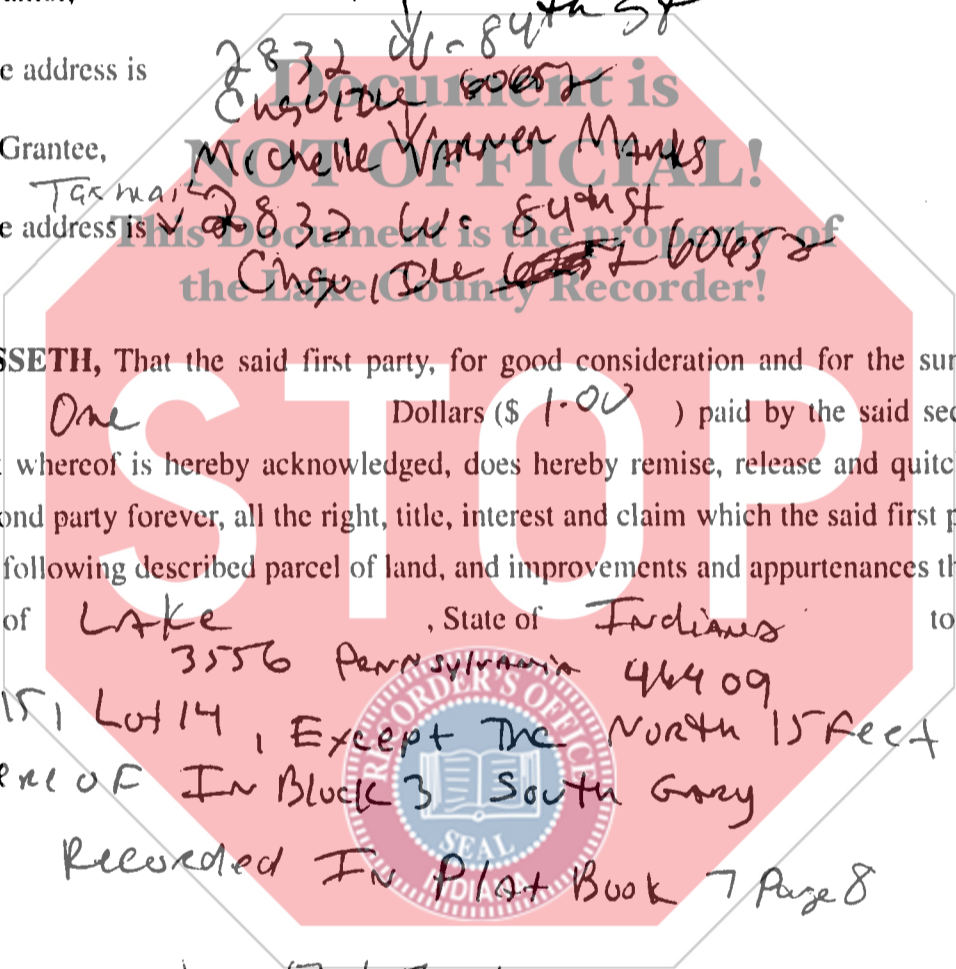 2832 W. 84th St
e address is
Chgo, Ill 60652
Document is
Grantee, Michelle Varner Marks
NOT OFFICIAL!
Tax mail
e address is 2832 W. 84th St
This Document is the property of
Chgo, Ill 60652
the Lake County Recorder!
SSETH, That the said first party, for good consideration and for the sum
One Dollars ($ 1.00 ) paid by the said sec
whereof is hereby acknowledged, does hereby remise, release and quitc
ond party forever, all the right, title, interest and claim which the said first p
following described parcel of land, and improvements and appurtenances th
of Lake , State of Indiana to
3556 Pennsylvania 46409
15, Lot 14, Except The North 15 Feet
ere of In Block 3 South Gary
Recorded In Plat Book 7 Page 8
STOP
RECORDER'S OFFICE
SEAL
INDIANA